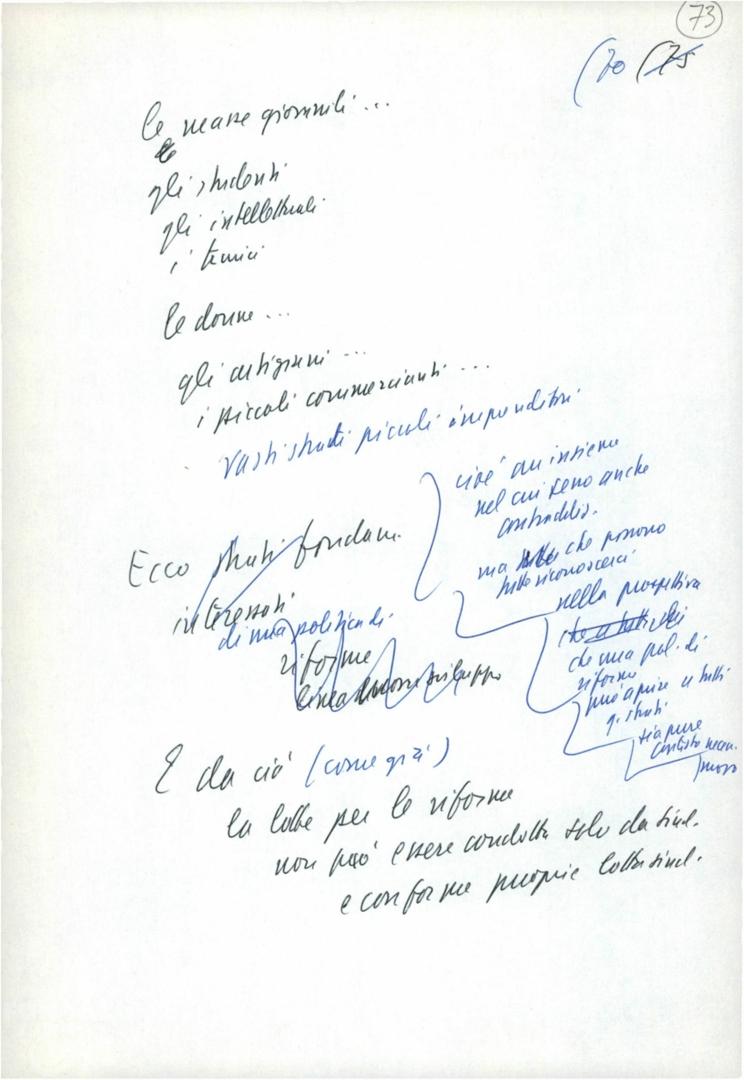 73
(70 (75
le masse giovanili...
gli studenti
gli intellettuali
i tecnici
le donne...
gli artigiani...
i piccoli commercianti...
Vasti strati piccoli imprenditori
cioè un insieme
nel cui seno anche
contraddiz.
ma tutte che possono
tutte riconoscersi
nella prospettiva
che una pol. di
riforme
può aprire a tutti
q. strati
sia pure
Ecco strati fondam.
interessati
di una politica di
riforme
linea nuovo sviluppo
E da ciò (come già)
la lotta per le riforme
non può essere condotta solo da sind.
e con forme proprie lotta sind.